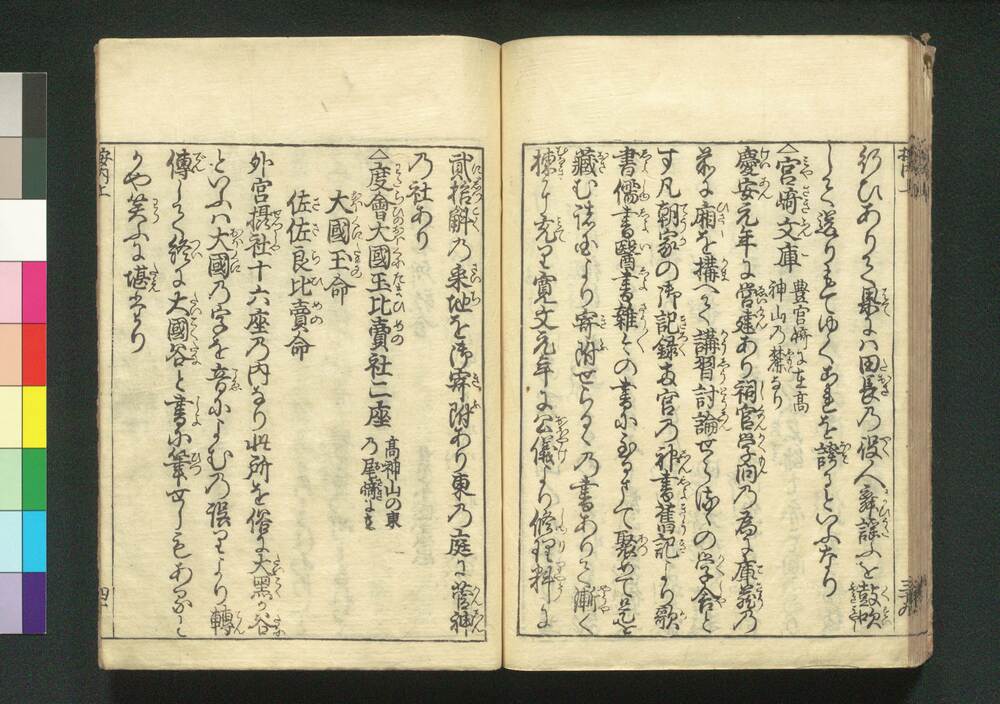 行ひありて果には田長の設へ舞謡ふを鼓吹
して送りもてゆくこれを謗るといふなり
△宮崎文庫 豊宮崎に在高
神山乃麓なり
慶安元年に営建あり祠官学問乃為に庫蔵乃
前に廂を構へて講習討論せらるゝの学舎と
す凡朝家の御記録両宮乃神書舊記より歌
書儒書醫書雑々の書に至るまて聚めて是を
蔵む諸国より寄附せらるゝ乃書ありて漸く
棟に充り寛文元年に公儀より修理料に
貳拾斛乃采地を御寄附あり東乃庭に菅神
乃社あり
△度會大國玉比賣社二座 高神山の東
乃尾崎に在
大國玉命
佐佐良比賣命
外宮摂社十六座乃内なり此所を俗に大黒か谷
といふハ大國乃字を音によむ乃誤りより轉
傳して終に大國谷と書に筆せしもあるハ
かや笑ふに堪たり